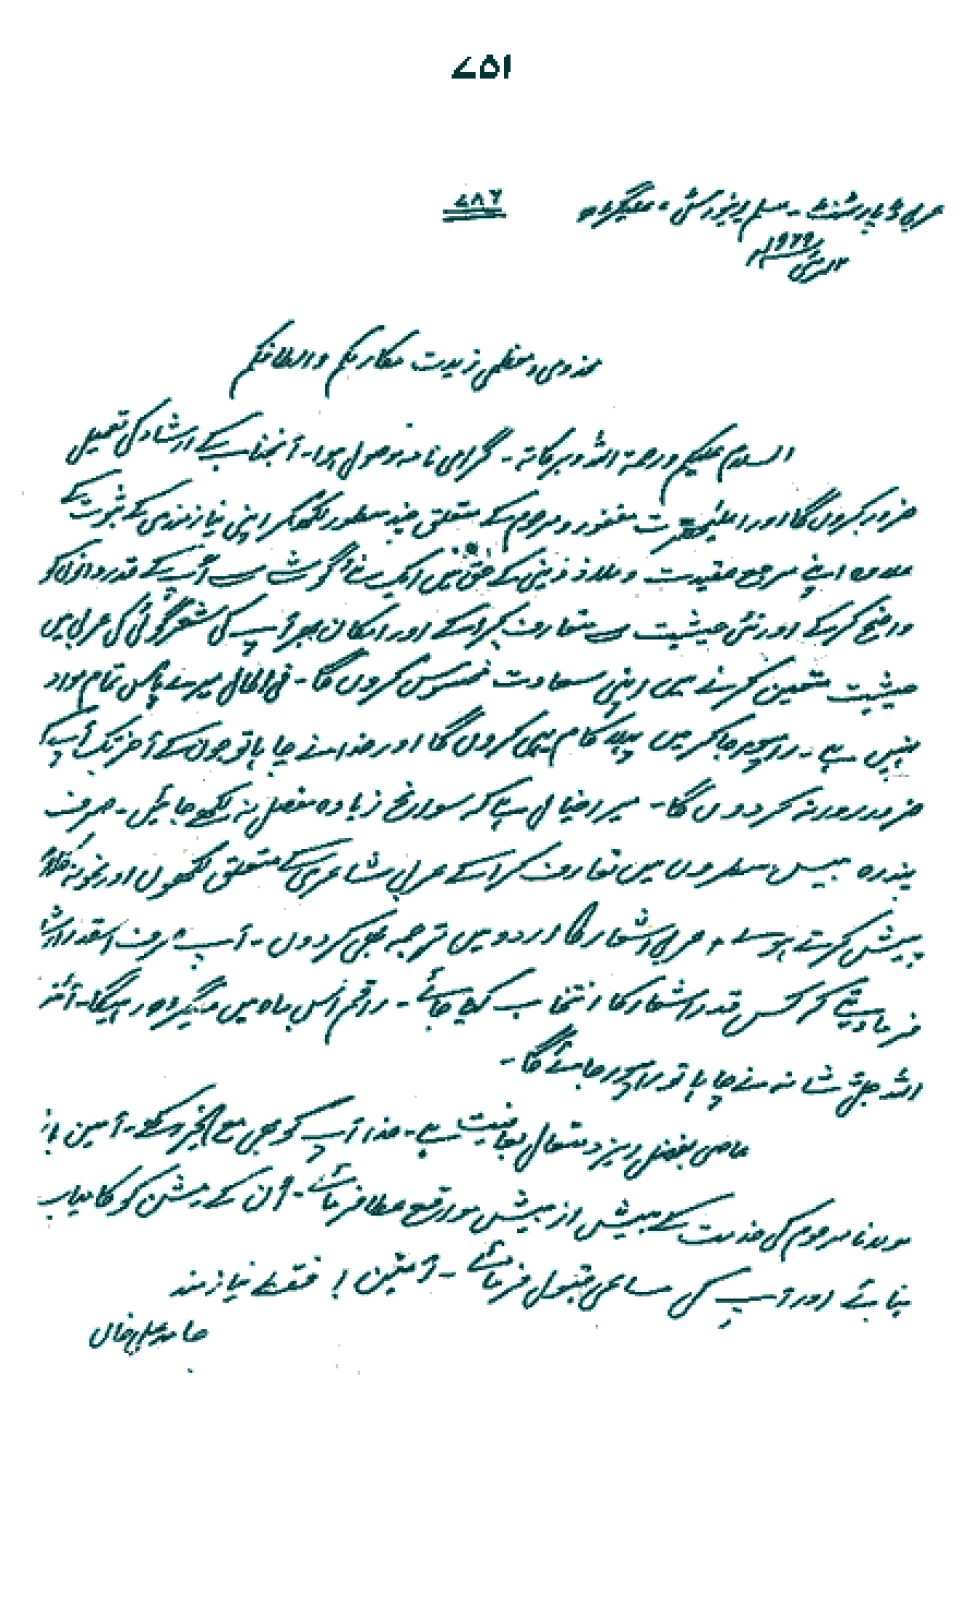 ۷۵۱
عربی ڈپارٹمنٹ - مسلم یونیورسٹی - علیگڑھ
۷۸۶
مئی ۱۹۶۹ء
مخدومی و معظمی زیدت مکارمکم و الطافکم
السلام علیکم ورحمۃ اللہ وبرکاتہ - گرامی نامہ موصول ہوا - آنجناب کے ارشاد کی تعمیل
ضرور کروں گا اور اعلیٰحضرت مغفور و مرحوم کے متعلق چند سطور لکھکر اپنی نیازمندی کے ثبوت کے
علاوہ اپنے مرجع عقیدت کے حق میں ایک نئے گوشے سے آپ کے قدردانوں کو
واضح کرکے اور نئی حیثیت سے متعارف کراکے اور امکان بھر آپ کی شعر گوئی کی عربی میں
حیثیت متعین کرنے میں اپنی سعادت محسوس کروں گا - فی الحال میرے پاس تمام مواد
نہیں ہے - رامپور جاکر میں پہلا کام یہی کروں گا اور خدا نے چاہا تو جون کے آخر تک آپ کو
ضرور روانہ کردوں گا - میرا خیال ہے کہ سوانح زیادہ مفصل نہ لکھے جائیں - صرف
پندرہ بیس سطروں میں تعارف کراکے عربی شاعری کے متعلق لکھوں اور نمونہ کلام
پیش کرتے ہوئے عربی اشعار کا اردو میں ترجمہ بھی کردوں - آپ صرف اسقدر ارشاد
فرمادیجئے کہ کس قدر اشعار کا انتخاب کیا جائے - راقم اس ماہ میں علیگڑھ رہیگا - آئندہ
اللہ جل شانہ نے چاہا تو رامپور جائے گا -
عاصی بفضل ایزد متعال بعافیت ہے - خدا آپ کو بھی مع الخیر رکھے - آمین
مولانا مرحوم کی خدمت کے بیش از بیش مواقع عطا فرمائے - اُن کے مشن کو کامیاب
بنائے اور آپ کی مساعی قبول فرمائے - آمین ! فقط نیازمند
حامد علی خاں